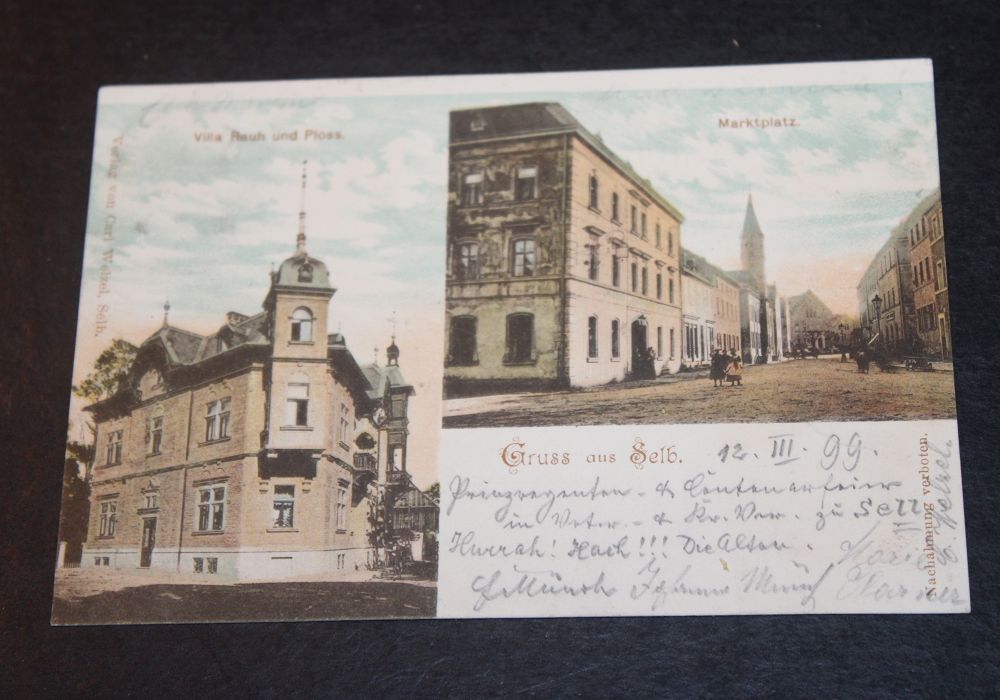 Villa Rauh und Ploss.
Marktplatz.
Verlag von Carl Wetzel, Selb.
Gruss aus Selb.
12. III. 99.
Prinzregenten- & Centenarfeier
in Veter.- & Kr. Ver. zu Selb
Hurrah! Hoch!!! Die Alten.
Münch Johanna Münch
Nachahmung verboten.